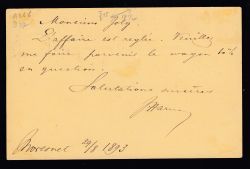 Monsieur Joly.
L'affaire est reglée. Veuillez
me faire parvenir le wagon
en question.
Salutations sincères
Moresnet 29/8 1893